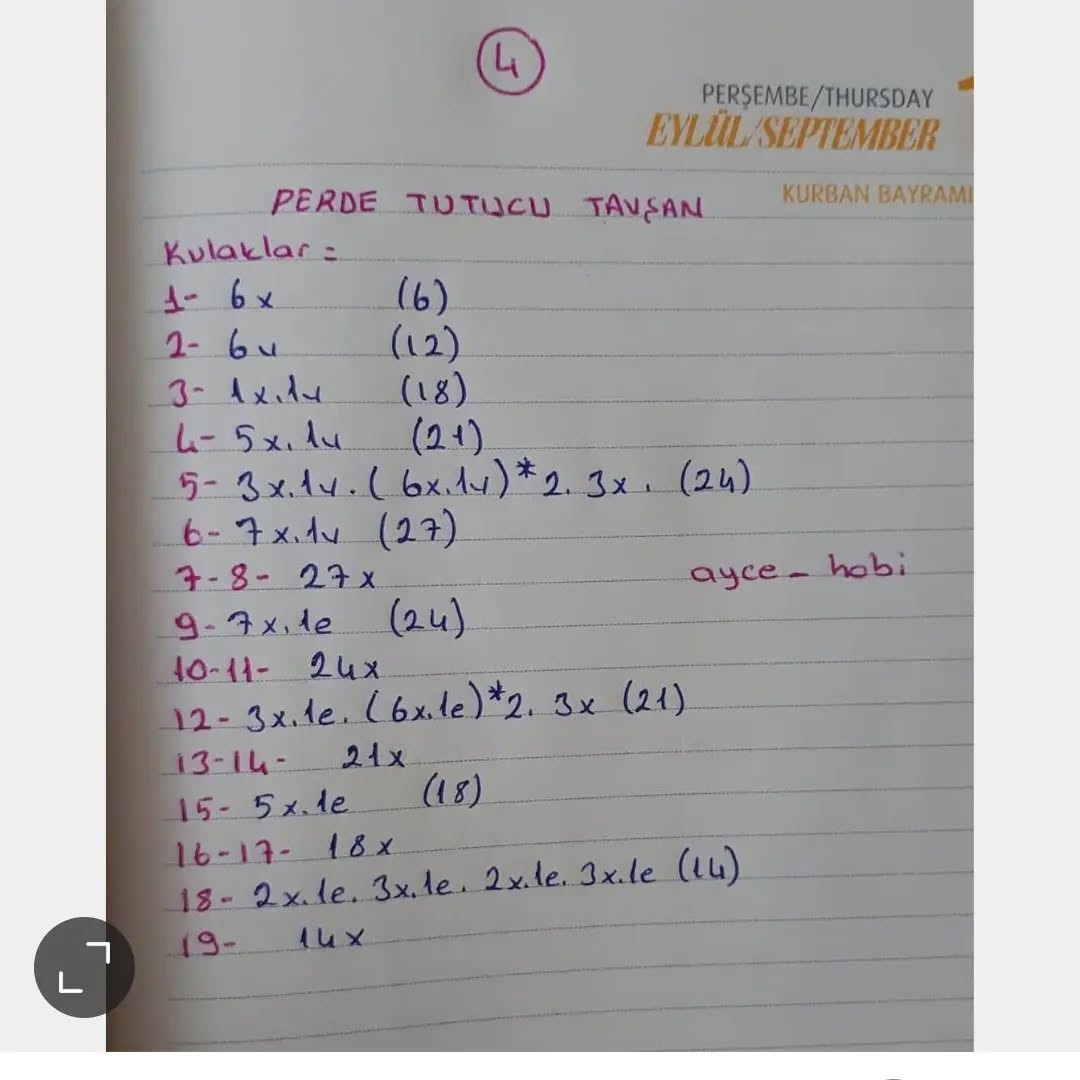 4
PERŞEMBE/THURSDAY
EYLÜL/SEPTEMBER
KURBAN BAYRAMI
PERDE TUTUCU TAVŞAN
Kulaklar =
1- 6x (6)
2- 6v (12)
3- 1x.1v (18)
4- 5x.1v (21)
5- 3x.1v.(6x.1v)*2.3x. (24)
6- 7x.1v (27)
7-8- 27x
ayce-hobi
9- 7x.1e (24)
10-11- 24x
12- 3x.1e.(6x.1e)*2.3x (21)
13-14- 21x
15- 5x.1e (18)
16-17- 18x
18- 2x.1e.3x.1e.2x.1e.3x.1e (14)
19- 14x